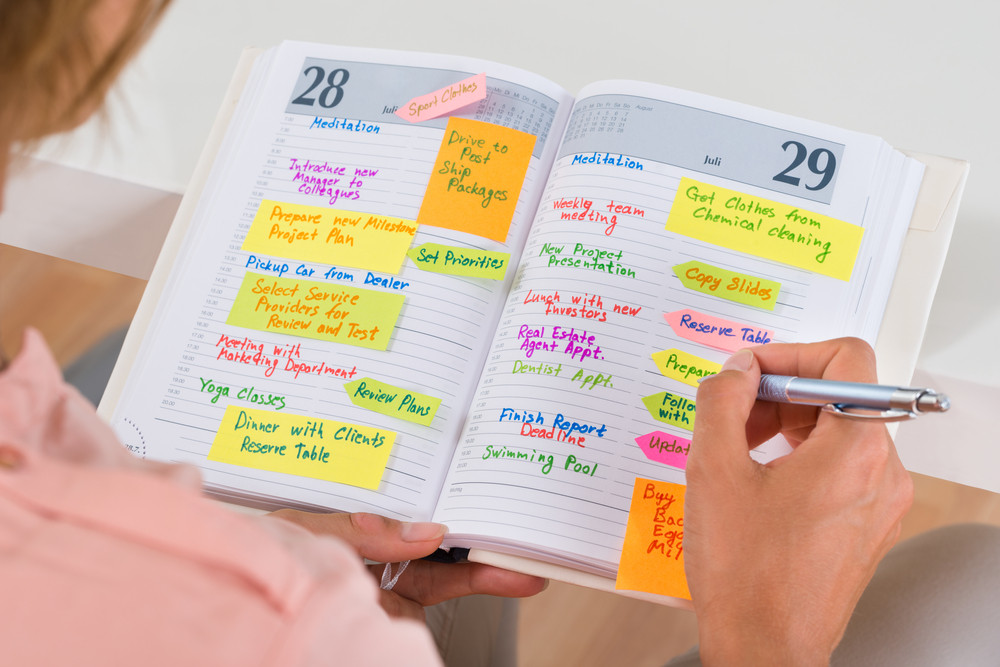 28
Juli
Sport Clothes
Meditation
Drive to
Post
Ship
Packages
Introduce new
Manager to
Colleagues
Prepare new Milestone
Project Plan
Set Priorities
Pickup Car from Dealer
Select Service
Providers for
Review and Test
Meeting with
Marketing Department
Review Plans
Yoga Classes
Dinner with Clients
Reserve Table
August
Juli
29
Meditation
Get Clothes from
Chemical cleaning
Weekly team
meeting
New Project
Presentation
Copy Slides
Lunch with new
Investors
Reserve Table
Real Estate
Agent Appt.
Prepare
Dentist Appt.
Follo
with
Finish Report
Deadline
Updat
Swimming Pool
Buy
Bac